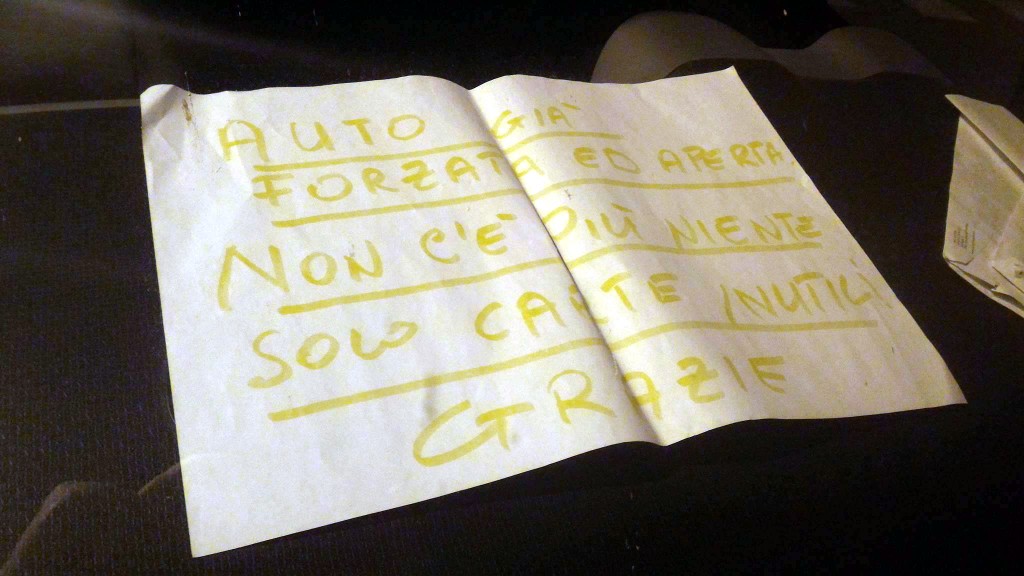 AUTO GIÀ
FORZATA ED APERTA.
NON C'È PIÙ NIENTE
SOLO CARTE INUTILI
GRAZIE